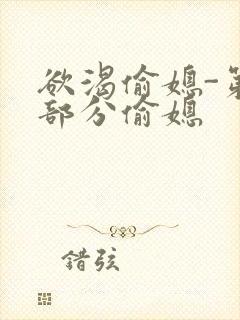 欲渴偷媳-第
部分偷媳
错弦